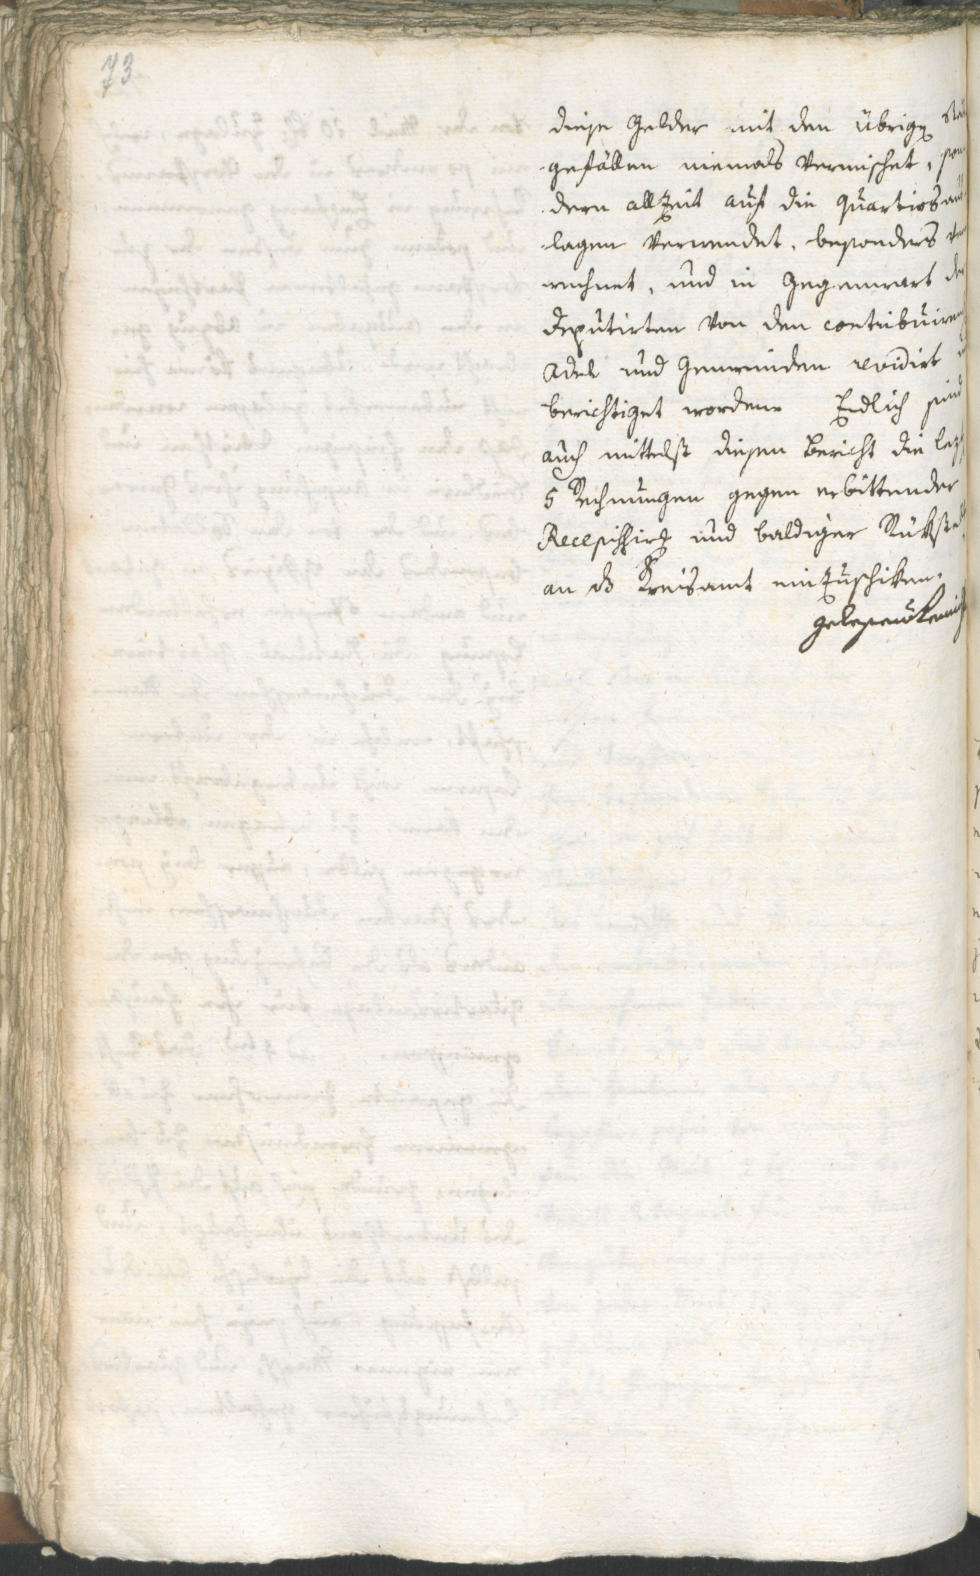 73
diese Gelder mit den übrigen
gefällen niemals vermischet, son
dern allzeit auf die Quartirs an
lagen verwendet, besonders ver
rechnet, und in Gegenwart der
Deputirten von den contribuiren
Adel und Gemeinden revidirt
berichtiget worden. Endlich sind
auch mittelst diesen Bericht die lez
5 Rechnungen gegen erbittender
und baldiger Rükste
an ds Kreisamt einzuschiken.